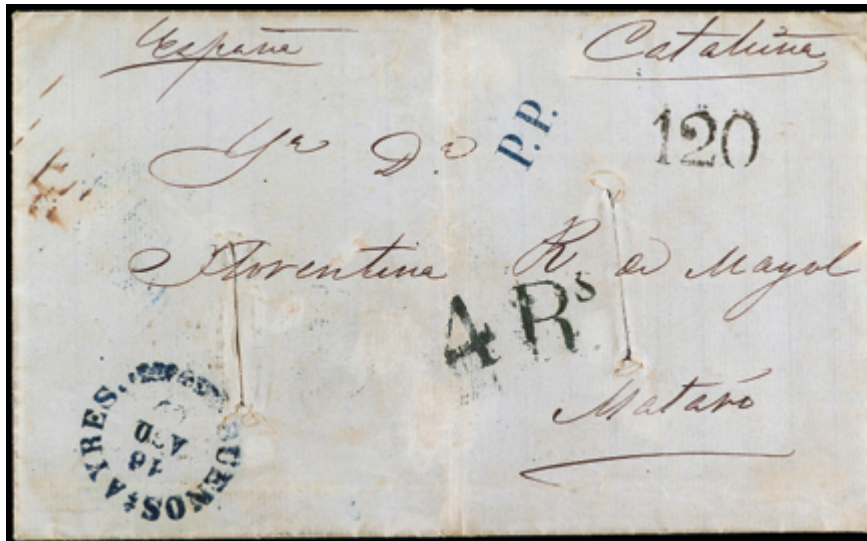 España Cataluña
P.P. 120
Sra Da
Florentina R de Mayol
4 Rs
Mataró
BUENOS AYRES.
16
AGO